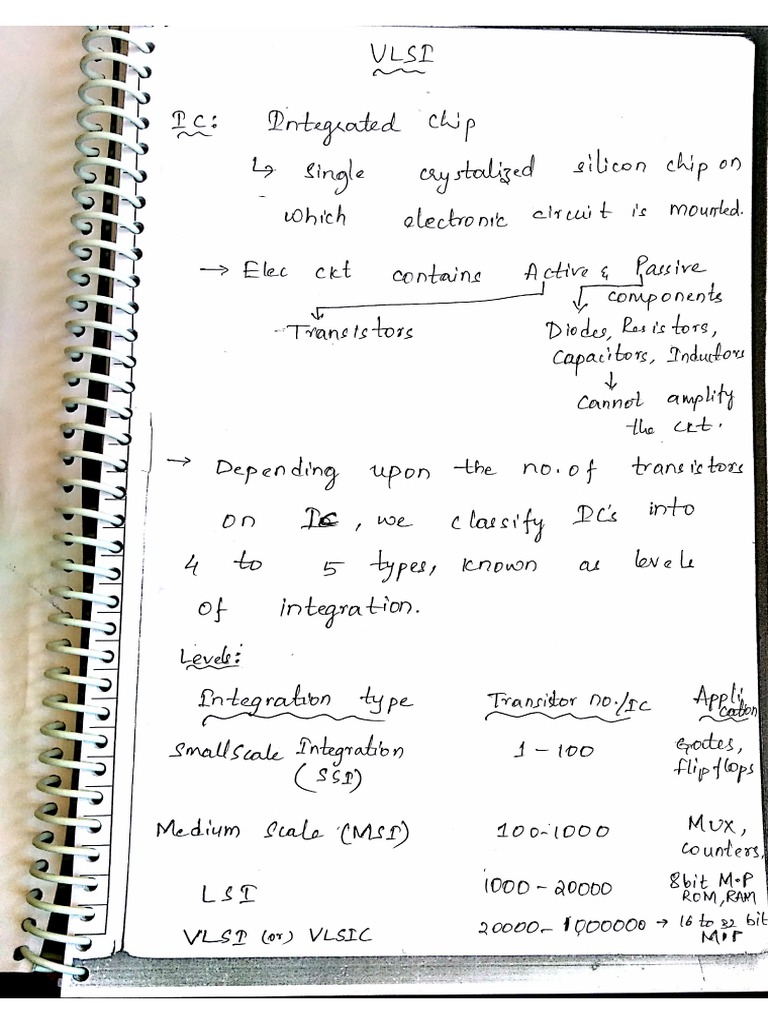 VLSI
IC: Integrated chip
↳ single crystalized silicon chip on
which electronic circuit is mounted.
→ Elec ckt contains Active & Passive
components
Transistors
Diodes, Resistors,
Capacitors, Inductors
↓
Cannot amplify
the ckt.
→ Depending upon the no. of transistors
on IC, we classify IC's into
4 to 5 types, known as levels
of integration.
Levels:
Integration type Transistor no./IC Application
Small Scale Integration (SSI) 1 - 100 Gates, flip flops
Medium Scale (MSI) 100-1000 MUX, counters,
LSI 1000 - 20000 8bit M.P ROM, RAM
VLSI (or) VLSIC 20000 - 1000000 → 16 to 32 bit M.P